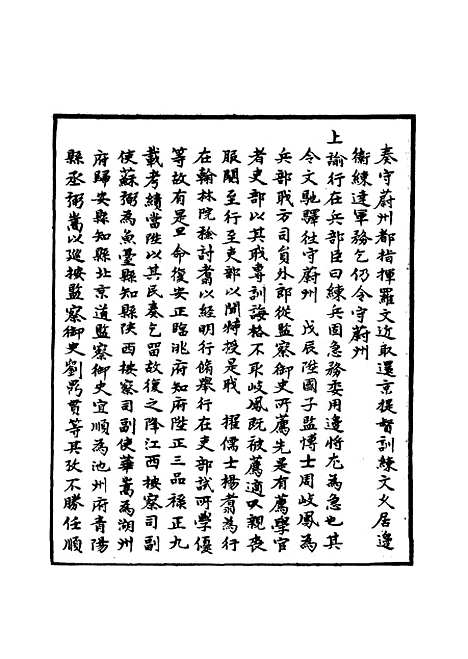 奏守蔚州都指揮羅文近取還京提督訓練文久居邊
衛練達軍務乞仍令守蔚州
上諭行在兵部臣曰練兵固急務委用邊將尤為急也其
令文馳驛往守蔚州 戊辰陞國子監博士周岐鳳為
兵部職方司員外郎從監察御史所薦先是有薦學官
者吏部以其職專訓誨格不取岐鳳既被薦適以親喪
服闋至行至吏部以聞特授是職 擢儒士楊翥為行
在翰林院檢討翥以經明行脩舉行在吏部試所學優
等故有是命復安正臨洮府知府陞正三品祿正九
載考績當陞以其民奏乞留故復之降江西按察司副
使蘇弼為魚臺縣知縣陝西按察司副使華嵩為湖州
府歸安縣知縣北京道監察御史宜順為池州府青陽
縣丞弼嵩以巡按監察御史劉鼎貫等其攷不勝任順